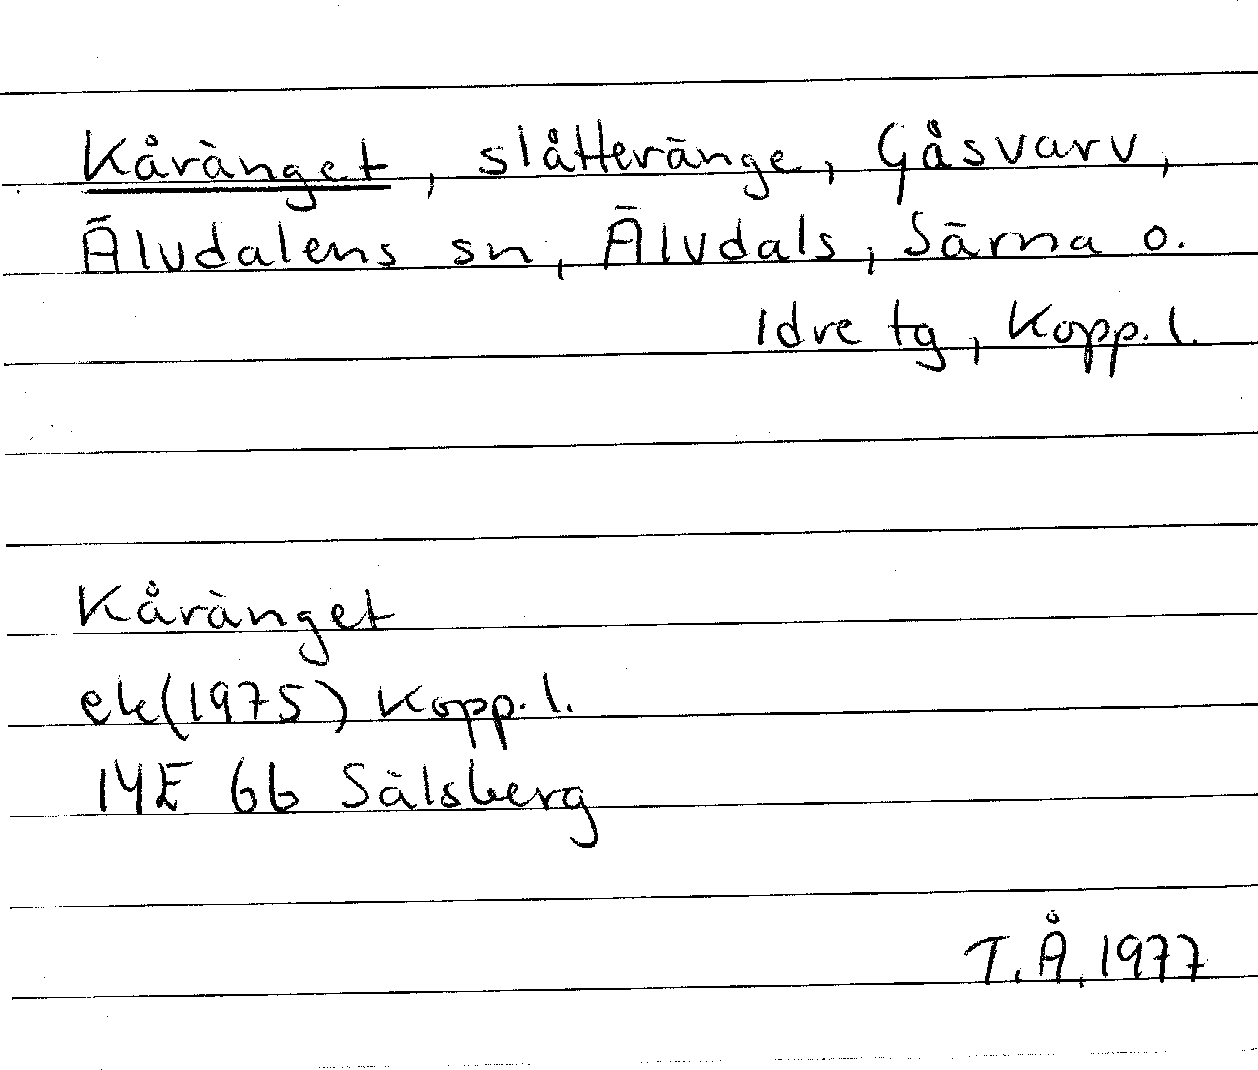 Kåränget, slåtteränge, Gåsvarv,
Älvdalens sn, Älvdals, Särna o.
Idre tg, Kopp. l.
Kåränget
ek (1975) Kopp. l.
14E 6b Sälsberg
T. Å. 1977